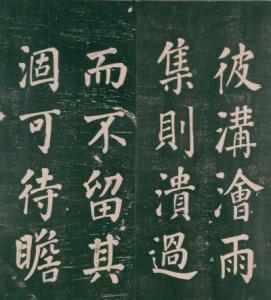 彼溝澮雨
集則潰過
而不留其
涸可待瞻